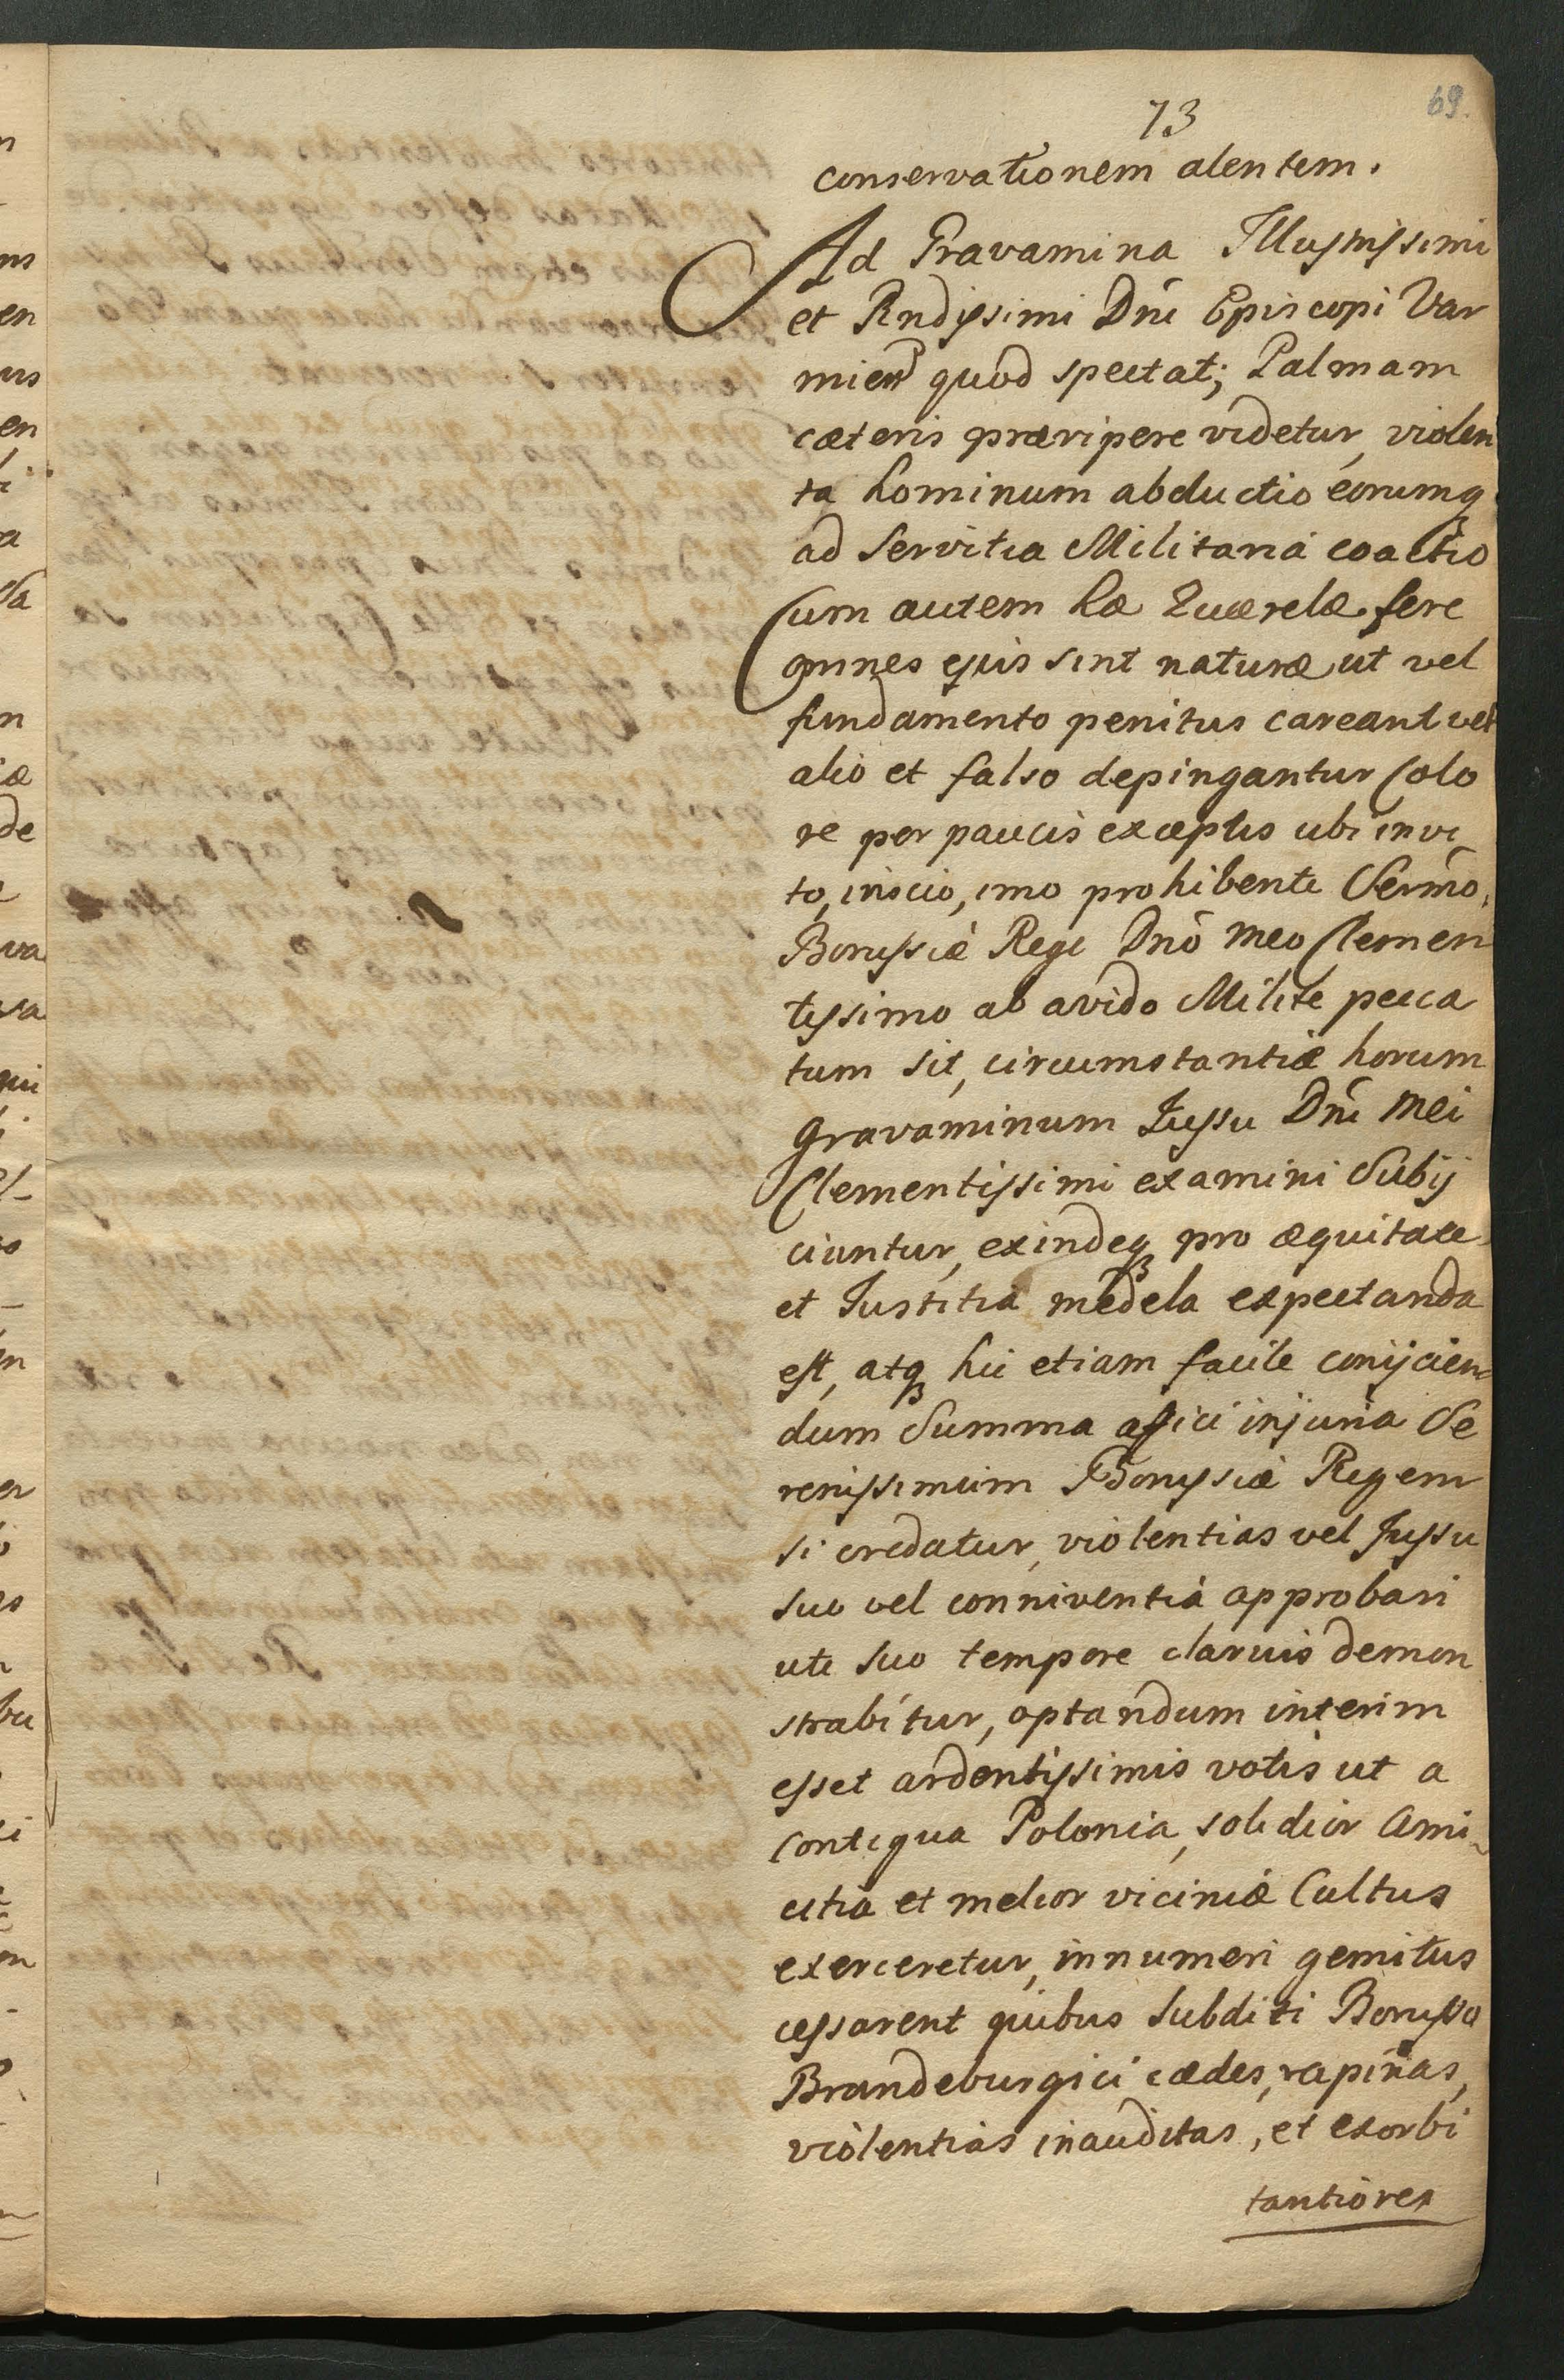 69.
73
conservationem alentem.
Ad Gravamina Illustrissimi
et Rndissimi Dni Episcopi Var
mien quod spectat; Palmam
cæteris præripere videtur, violen
ta hominum abductio eorumq
ad Servitia Militaria coactio
Cum autem hæ Quærelæ fere
omnes ejus sint naturæ ut vel
fundamento penitus careant vel
alio et falso depingantur Colo
re per paucis exceptis ubi invi
to, inscio, imo prohibente Sermo
Borussiæ Rege Dno meo Clemen
tissimo ab avido Milite pecca
tum sit, circumstantiæ horum
gravaminum Jussu Dni mei
Clementissimi examini Subij
ciuntur, exindeq pro æquitate
et Justitia medela expectanda
est, atq hic etiam facile conijcien
dum Summa affici injuria Se
renissimum Borussiæ Regem
si credatur, violentias vel Jussu
suo vel conniventia approbari
uti suo tempore clarius demon
strabitur, optandum interim
esset ardentissimis votis ut a
contigua Polonia, solidior Ami
citia et melior viciniæ Cultus
exerceretur, innumeri gemitus
cessarent quibus Subditi Borusso
Brandeburgici cædes, rapinas,
violentias inauditas, et exorbi
tantiores